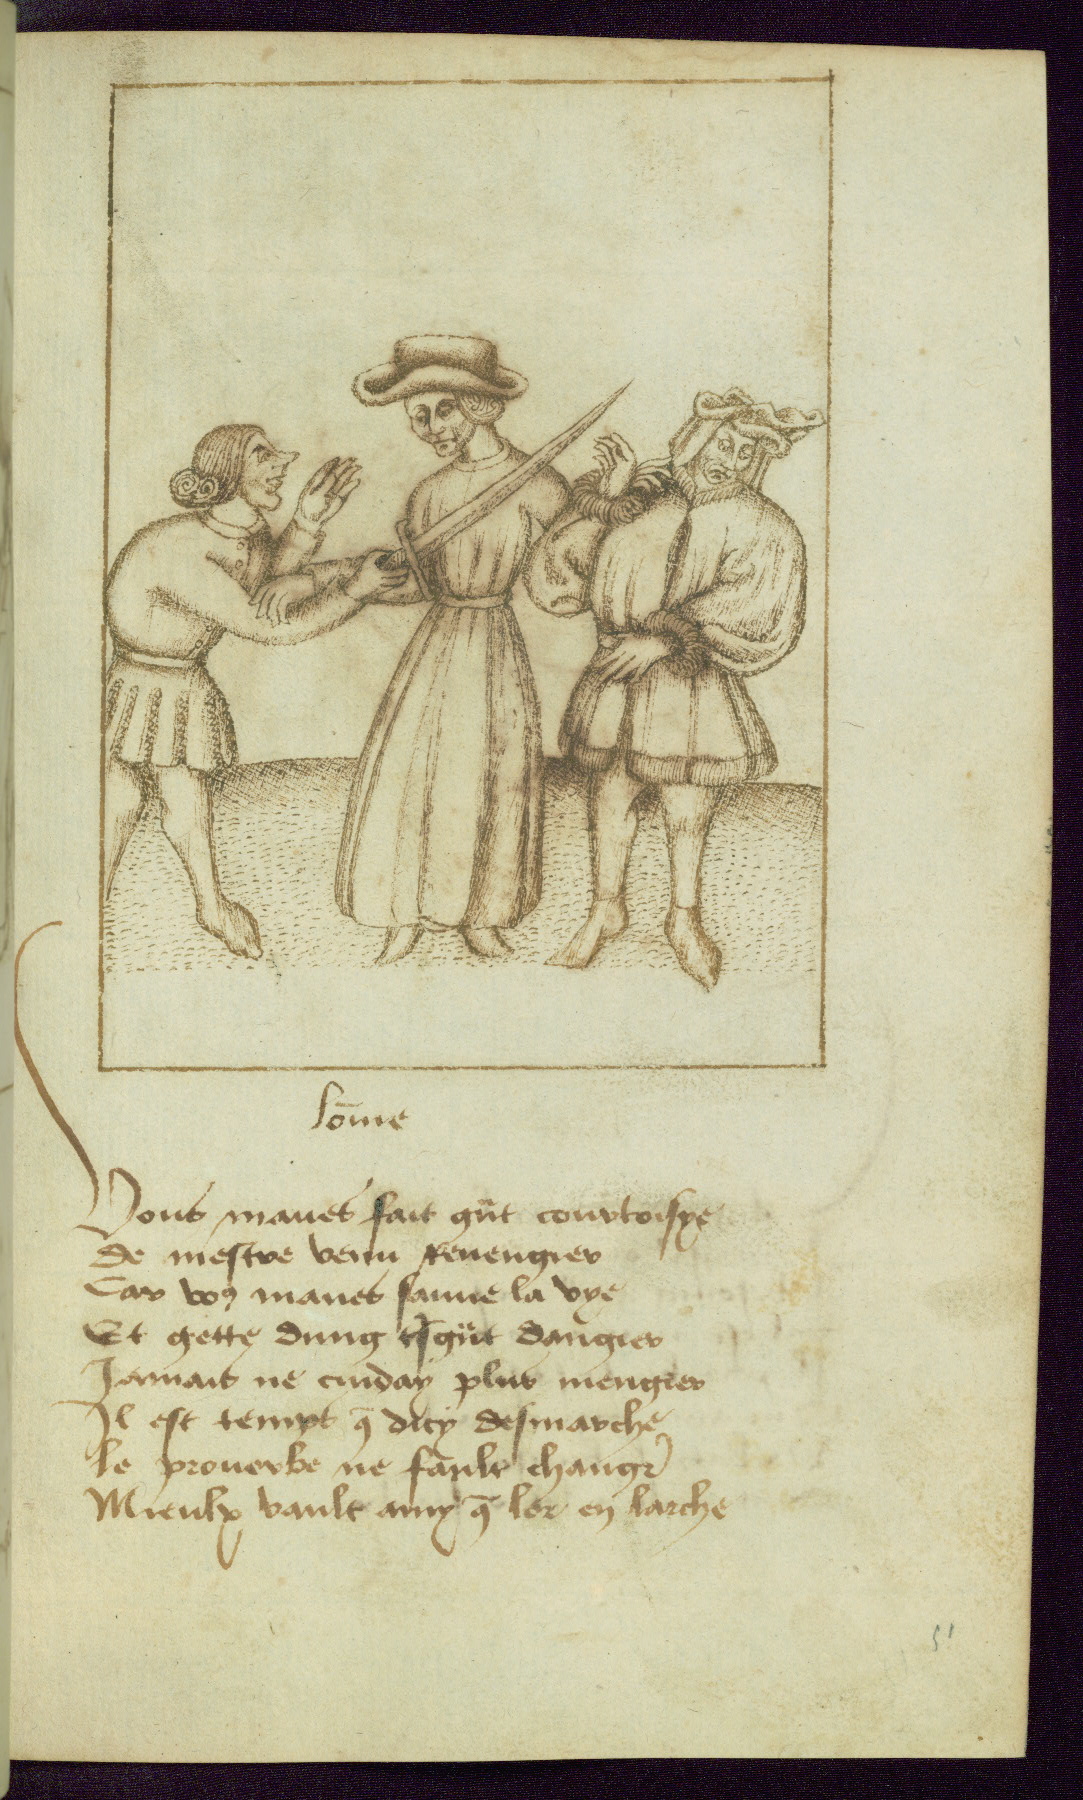 lōme
Vous maves fait gnt courtoisye
de mestre venu revengier
Car vo9 maves sauue la vye
Et gette dung gnt dangier
Jamais ne cuiday plus mengier
Il est temps q̄ dicy desmarche
le prouerbe ne fault changr
Mieulx vault amy q̄ lor en larche
51